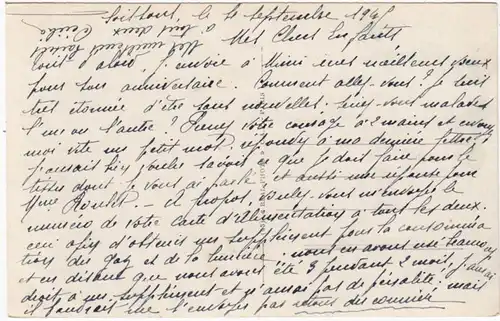 Soissons, le 4 Septembre 1945
Mes Chers Enfants
Tout d'abord j'envoie à Mimi mes meilleurs vœux
pour son anniversaire. Comment allez-vous? Je suis
très étonnée d'être sans nouvelles. Seriez-vous malades
l'un ou l'autre? Prenez votre courage à 2 mains et envoyez
moi vite un petit mot. répondez à ma dernière lettre
j'aimerais bien savoir ce que je dois faire pour le
dont je vous ai parlé et aussi une réponse pour
Mme À propos, voulez-vous m'envoyer le
numéro de votre carte d'alimentation à tous les deux.
ceci afin d'obtenir un supplément pour la consomma
tion du gaz et de la lumière. nous en avons usé
et en disant que nous avons été 3 pendant 2 mois, j'aurai
droit à un supplément et n'aurai pas de pénalité; mais
il faudrait me l'envoyer par retour du courrier
Mes meilleurs baisers
à tous deux